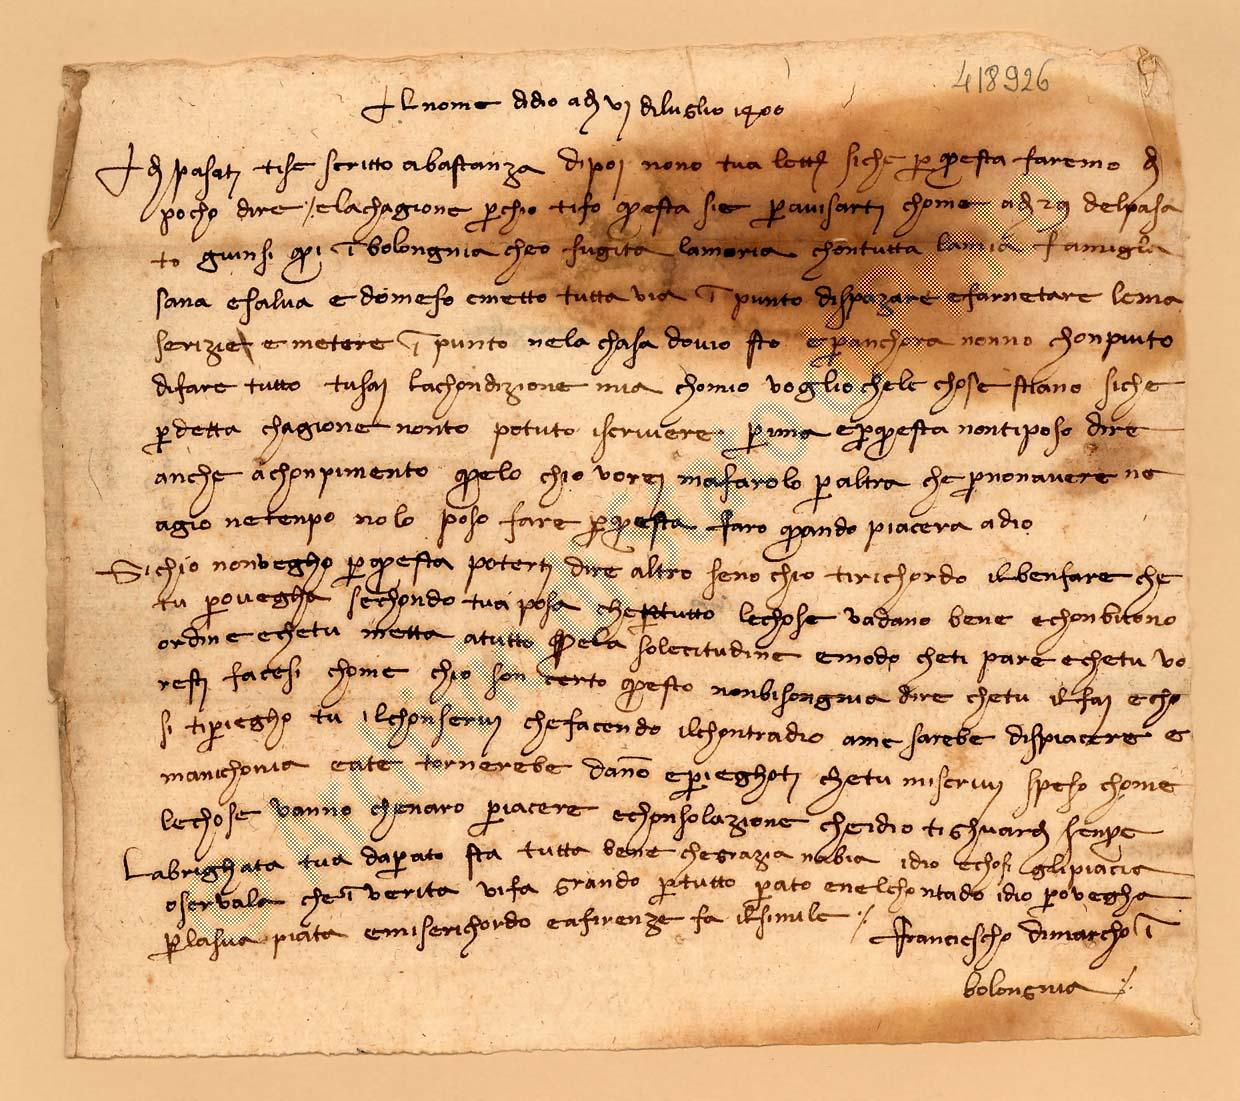 418926
Al nome di dio adi vj di luglio 1400
A di pasati ti se scritto abastanza dipoi nono tua lettera siche per questa faremo di
pocho dire / e la chagione perchio ti fo questa sie per avisarti chome adi 29 del pasa
to giunsi qui in bolongnia cheo fugita la moria chontutta la mia famiglia
sana e salva e domeso e metto tutta via in punto dispazare e farnetare le ma
serizie e metere in punto nela chasa dovio sto e per anchora nonno chonpiuto
di fare tutto tu sai la chondizione mia chomio voglio che le chose stiano siche
per detta chagione nonto potuto iscrivere prima e per questa non ti poso dire
anche a chonpimento quelo chio vorei ma farolo per altra che per non avere ne
agio ne tenpo nolo poso fare per questa faro quando piacera a dio
Sichio non vegho per questa poterti dire altro seno chio ti richordo il ben fare che
tu provegha sechondo tua posa che per tutto le chose vadano bene e chon buono
ordine e che tu metta a tutto quela solecitudine e modo che ti pare e che tu vo
resti facesi chome chio son certo questo non bisongnia dire che tu il fai e cho
si ti priegho tu il chonservi che facendo il chontradio a me sarebe dispiacere e
manichonia e a te tornerebe danno e prieghoti che tu mi scrivi speso chome
le chose vanno chenaro piacere e chonsolazione che idio ti ghuardi senpre
La brighata tua da prato sta tutta bene che grazia nabia idio e chosi gli piacia
oservala che in verita vi fa grando per tutto prato e nel chontado idio provegha
per la sua piata e miserichordo e a firenze fa il simile /.
Franciescho di marcho in
bolongnia /.